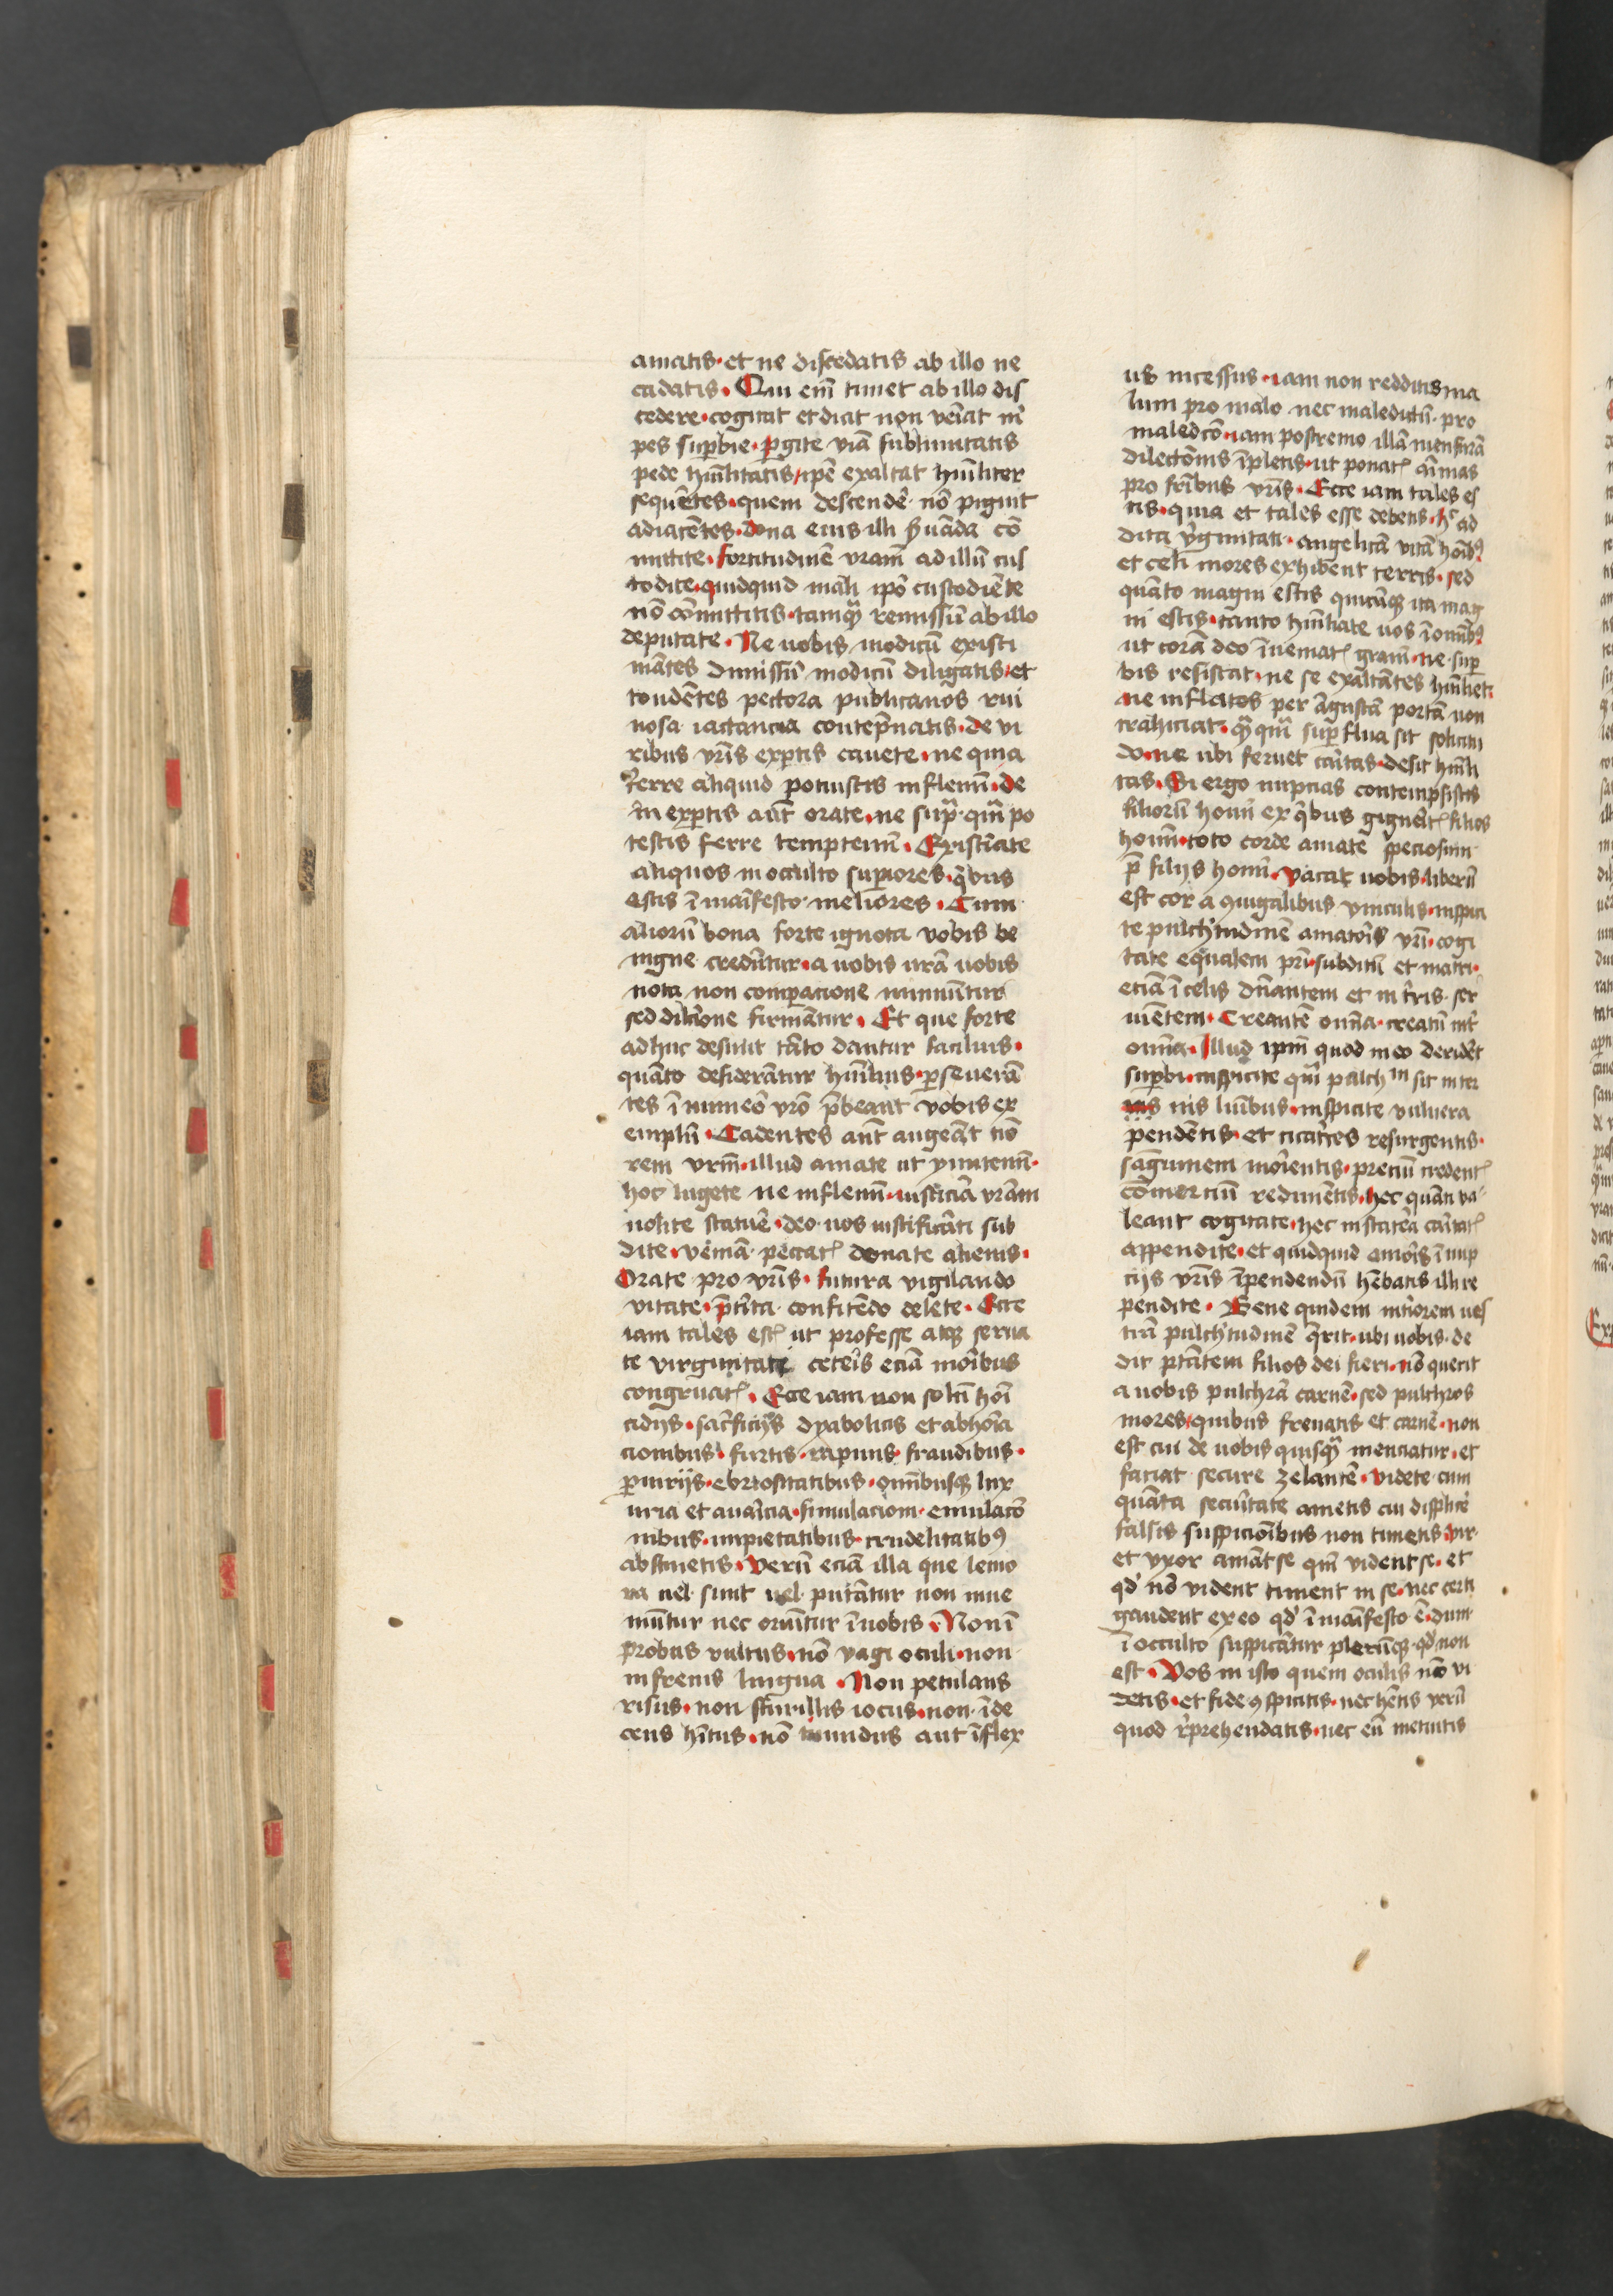 amatis · et ne discedatis ab illo ne
cadatis · Qui em̄ timet ab illo dis
cedere · cogitat et dicat non veīat m̄
pes sup̱bie · ꝑgite viā sublimitatis
pede hūilitatis / ip̄e exaltat hūiliter
sequētes · quem descendē nō piguit
ad iacētes · dona eius illi ẜuāda cō
mittite · fortitudinē vr̄am ad illū cus
todite · quidquid mali ip̄o custodiēte
nō cōmittitis · tamqꝫ remissū ab illo
deputate · Ne uobis modicū existi
mātes dimissū modicū diligatis · et
tondētes pectora publicanos rui
nosa iactancia contēpnatis · de vi
ribus vr̄is exꝑtis cavete · ne quia
ferre aliquid potuistis inflemī · de
in exꝑtis aūt orate · ne supͣ qm̄ po
testis ferre temptemī · Existīate
aliquos in occulto suꝑiores · qͥbus
estis ī māifesto meliores · Cum
aliorū bona forte ignota vobis be
nigne credūtur · a uobis ur̄a uobis
nota non comꝑacione minuūtur
sed dil̄cione firmātur · Et que forte
adhuc desunt tāto dantur facilius ·
quāto desiderātur hūilius · ꝑseuerā
tes ī numeō vr̄o p̄beant vobis ex
emplū · Cadentes aūt augeāt tiō
rem vr̄m · illud amate ut ymitemī ·
hoc lugete ne inflemī · iusticiā vr̄am
nolite statuē · deo uos iustificāti sub
dite · veniā peccatꝭ donate alienis ·
Orate pro vr̄is · futura vigilando
vitate · p̄t̄ita confitēdo delete · Ecce
iam tales estꝭ ut professe atqꝫ serua
te virginitate ceteīs eciā moībus
congruatꝭ · Ecce iam non solū hoī
cidijs · sacͥficijs dyabolicis et abhoīa
cionibus · furtis · rapinis fraudibus ·
ꝑiurijs · ebriositatibus · om̄ibusqꝫ lux
uria et auaīcia · simulacioni emulacō
nibus · impietatibus · crudelitatibꝰ
abstinetis · Verū eciā illa que leuio
ra uel sunt uel putātur non inue
niūtur nec oriūtur ī uobis · Non ī
probus vultus · nō vagi oculi · non
infrenis lingua · Non petulans
risus · non scurillis iocus · non īde
cens hītus · nō tumidus aut īflex
us incessus · iam non redditis ma
lum pro malo nec maledictū pro
maledcō · iam postremo illā mensurā
dilectōnis īpletis · ut ponatꝭ aīmas
pro frībus vr̄is · Ecce iam tales es
tis · quia et tales esse debetis · hͨ ad
dita vͥginitati · angelicā vitā hoībꝫ
et celi mores exhibent terris · sed
quāto magni estis quicūqꝫ ita mag
ni estis · tanto hūiliate uos ī om̄ibꝫ
ut corā deo īueniatꝭ grām · ne sup
bis resistat · ne se exaltātes hūiliet ·
ne inflatos per āgustā portā non
trahiciat · qͣqͣ suꝑflua sit solicitu
do · ne ubi feruet caītas · desit hūili
tas · Si ergo nupcias contempsistis
filiorū hoīm ex qͥbus gignētꝭ filios
hoīm · toto corde amate speciosum
p̄ filijs hoīm · vacat uobis · liberū
est cor a ꝯiugalibus vinculis · inspici
te pulchͥtudinē amatoīs vr̄i · cogi
tate eqͣlem pr̄i · subditū et matri ·
eciā ī celis dn̄antem et in tr̄is ser
uiētem · Creantē om̄ia · creatū int̄
om̄ia · Illud ip̄m quod in eo deridēt
sup̱bi · inspicite qm̄ pulchͫ sit inter
nis luībus · inspicite vulnera
pendētis · et cicatīces resurgentis ·
sāguinem moīentis · preciū credentꝭ
cōmerciū redimētis · hec quāti va
leant cogitate · hec in statēa caītatꝭ
appendite · et quidquid amoīs ī nup
cijs vr̄is īpendendū hēbatis illi re
pendite · Bene quidem int̄iorem ues
trā pulchͥtudinē qͥrit · ubi uobis de
dit ptātem filios dei fieri · nō querit
a uobis pulchrā carnē · sed pulchros
mores · quibus frenatis et carnē · non
est cui de uobis quisqͣ menciatur · et
faciat secure zelantē · videte cum
quāta secūitate ametis cui displicē
falsis suspicioībus non timetis · vir
et vxor amāt se qm̄ vident se · et
qd̄ nō vident timent in se · nec certi
gaudent ex eo qd̄ ī māifesto ē · dum
ī occulto suspicātur plerūqꝫ qd̄ non
est · Vos in isto quem oculis nō vi
detis · et fide ꝯspicitis · nec hētis verū
quod rͥprehendatis · nec eū metuitis